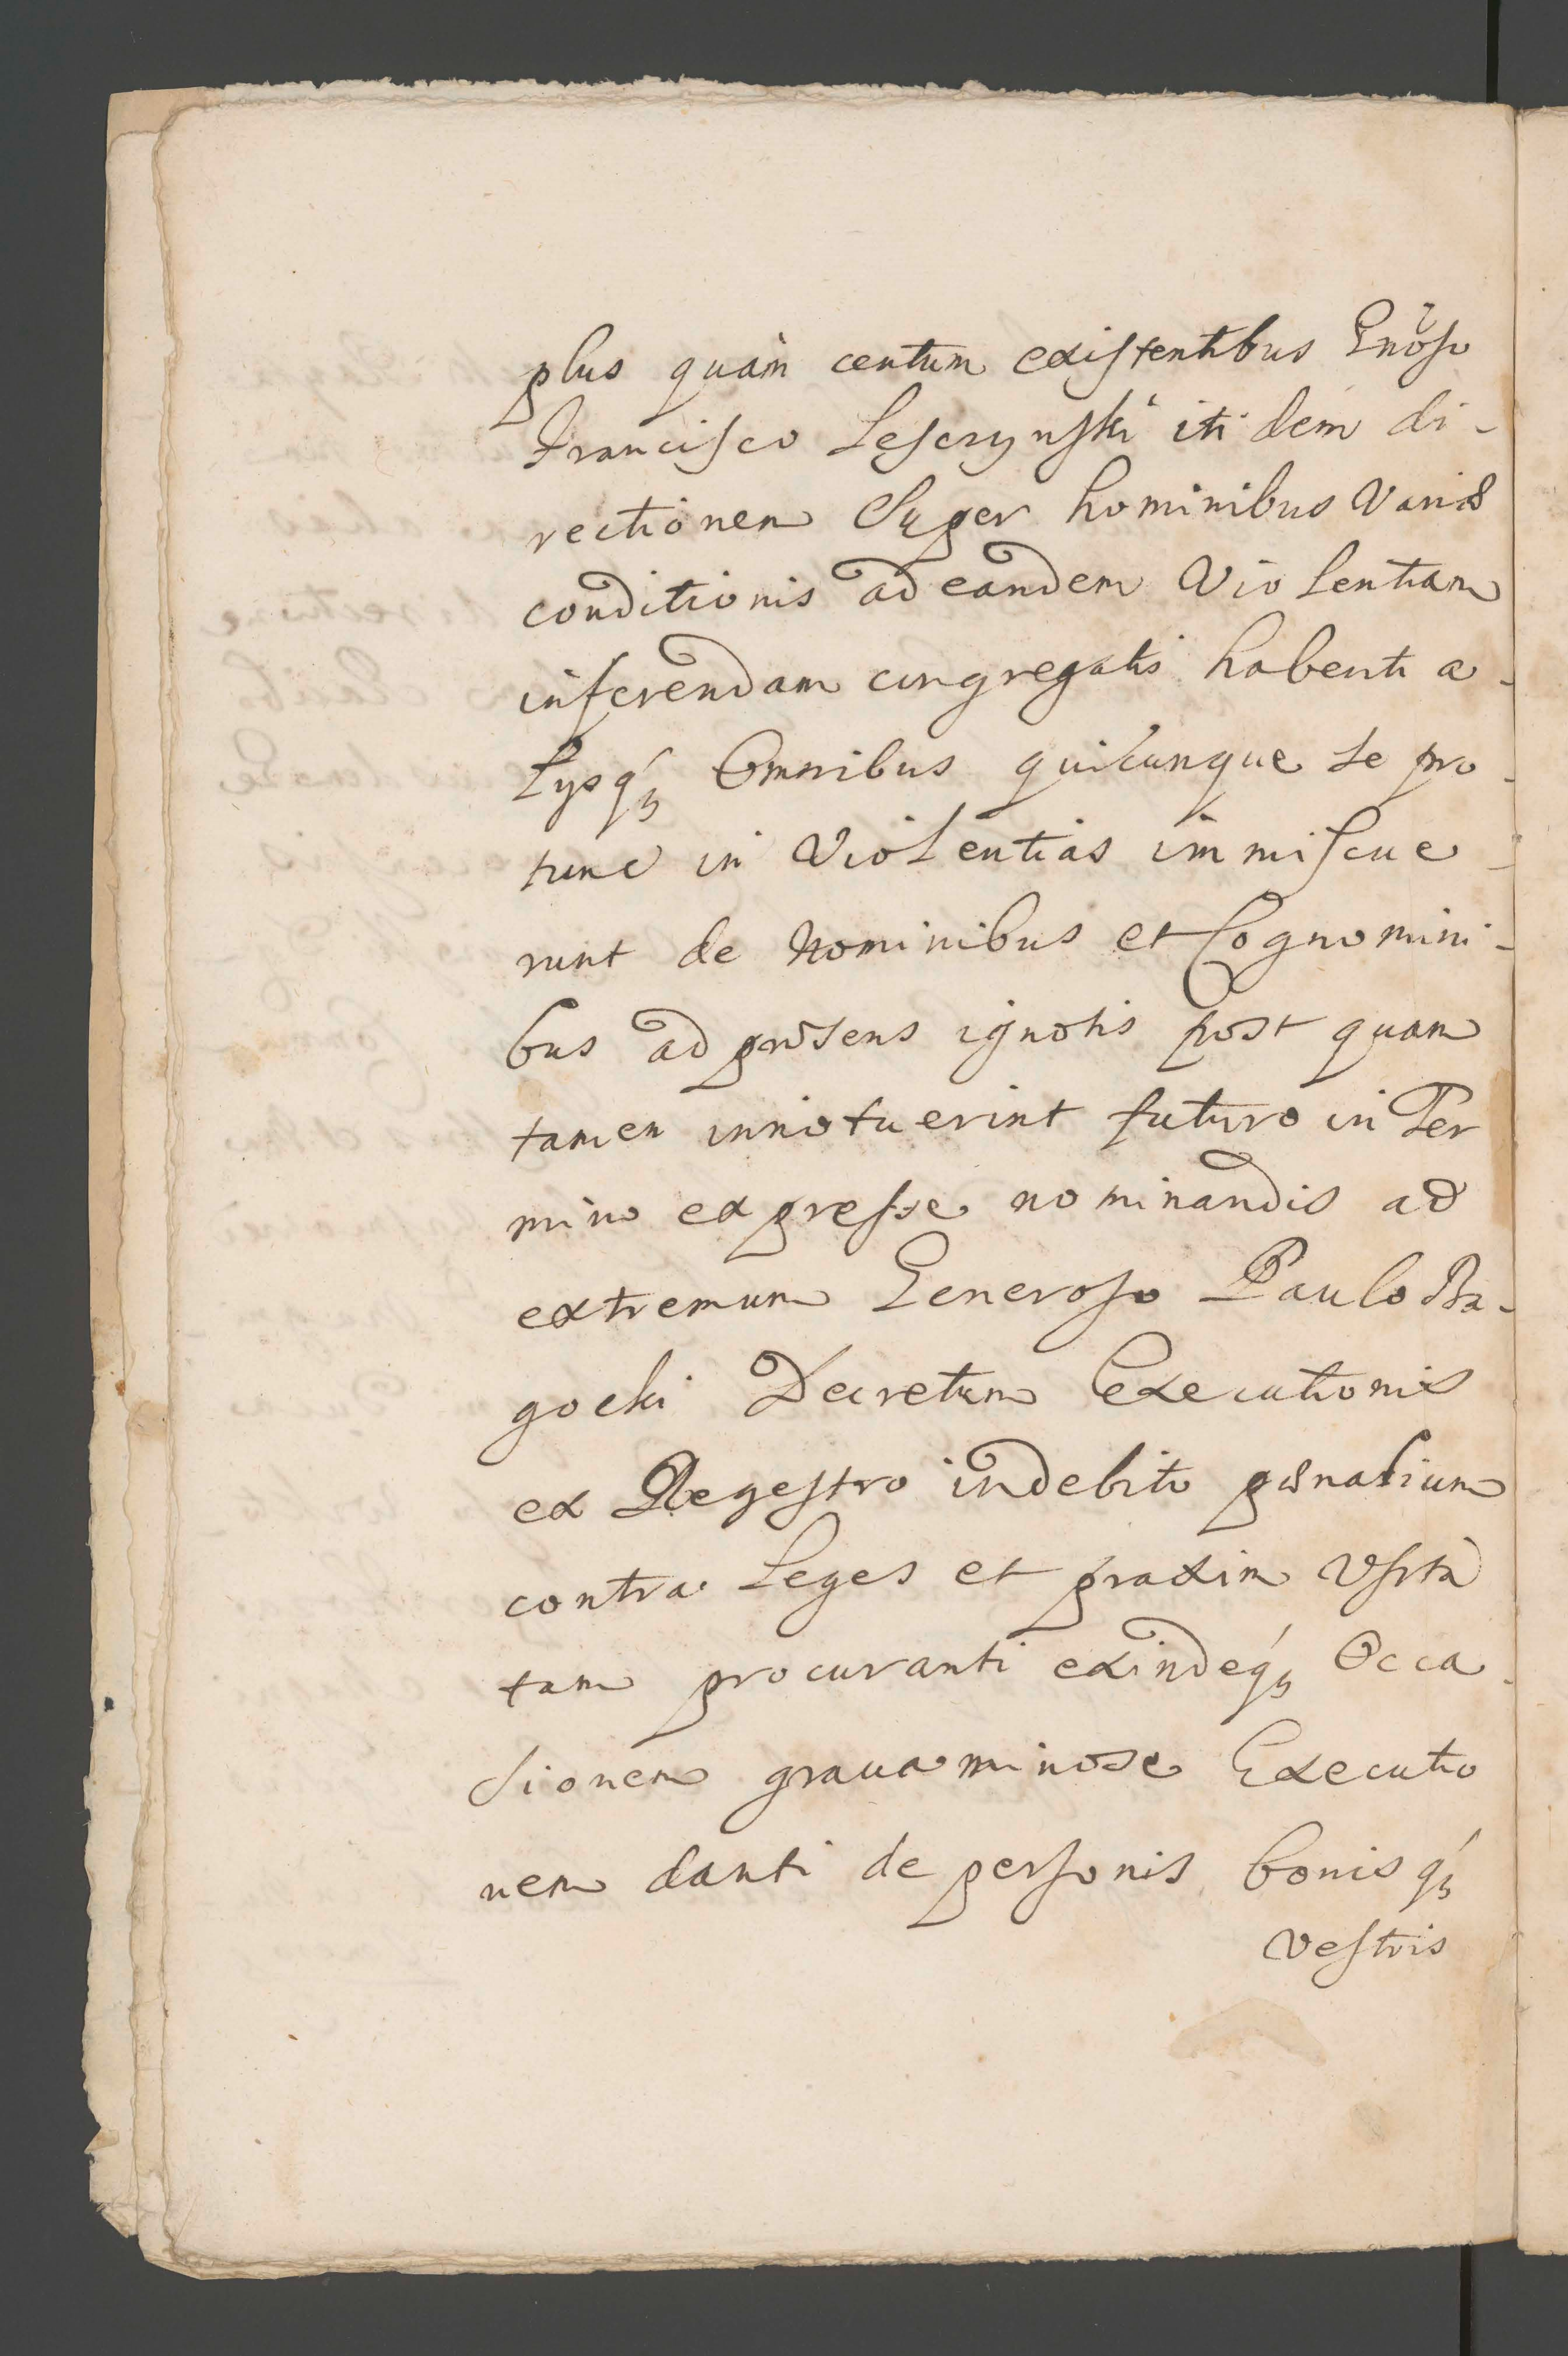 plus quàm centum existentibus Gnõso
Francisco Lesczynski itidem di-
rectionem Super hominibus Variæ
conditionis ad eandem Violentiam
inferendam congregatis habenti a-
lysq́ꝫ Omnibus quicunque se pro-
tunc in Violentias immiscue-
runt de Nominibus et Cognomini-
bus ad præsens ignotis post quam
tamen innotuerint futuro in Ter
mino expresse nominandis ad
extremum Generoso Paulo Ba-
gocki Decretum Executionis
ex Regestro indebito pœnalium
contra Leges et praxim Usita
tam procuranti exindeq́ꝫ Occa-
sionem gravaminose Executio
nem danti de personis bonisq́ꝫ
vestris